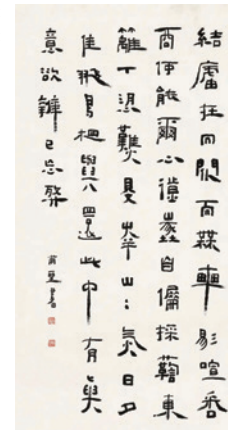 結廬在人境而無車馬喧問
君何能爾心遠地自偏採菊東
籬下悠然見南山山氣日夕
佳飛鳥相與還此中有真
意欲辨已忘言